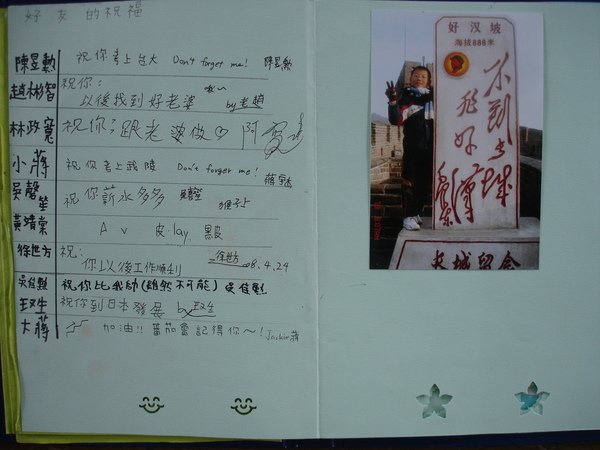 好友的祝福
陳昱勳 祝你考上台大 Don't forget me! 陳昱勳
趙彬智 祝你:
以後找到好老婆 by 老趙
林政寬 祝你:跟老婆做♡ 阿寬
小蔣 祝你考上武陵 Don't forget me!
吳馨笙 祝你薪水多多
黃靖棠 A v 皮lay.
徐世方 祝:
你以後工作順利 徐世方 08.4.24
祝你比我帥(雖然不可能)
祝你到日本發展 by
大蔣 加油!! 蕃茄會記得你~! Jackie蔣
好汉坡
海拔888米
不到长城非好汉
毛泽东
长城留念